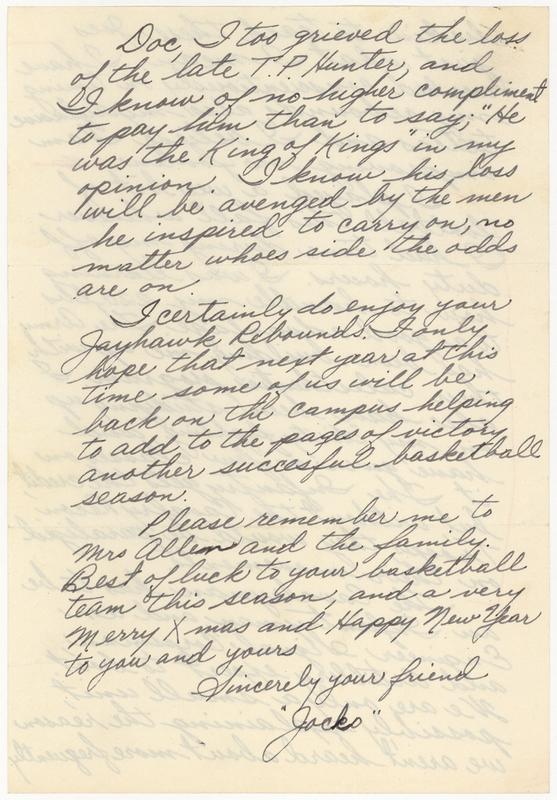 Doc, I too grieved the loss
of the late T.P. Hunter, and
I know of no higher compliment
to pay him than to say; "He
was the King of Kings" in my
opinion. I know his loss
will be avenged by the men
he inspired to carry on, no
matter whoes side the odds
are on.
I certainly do enjoy your
Jayhawk Rebounds. I only
hope that next year at this
time some of us will be
back on the campus helping
to add to the pages of victory
another succesful basketball
season.
Please remember me to
Mrs Allen and the family.
Best of luck to your basketball
team this season, and a very
Merry Xmas and Happy New Year
to you and yours
Sincerely your friend
"Jocko"